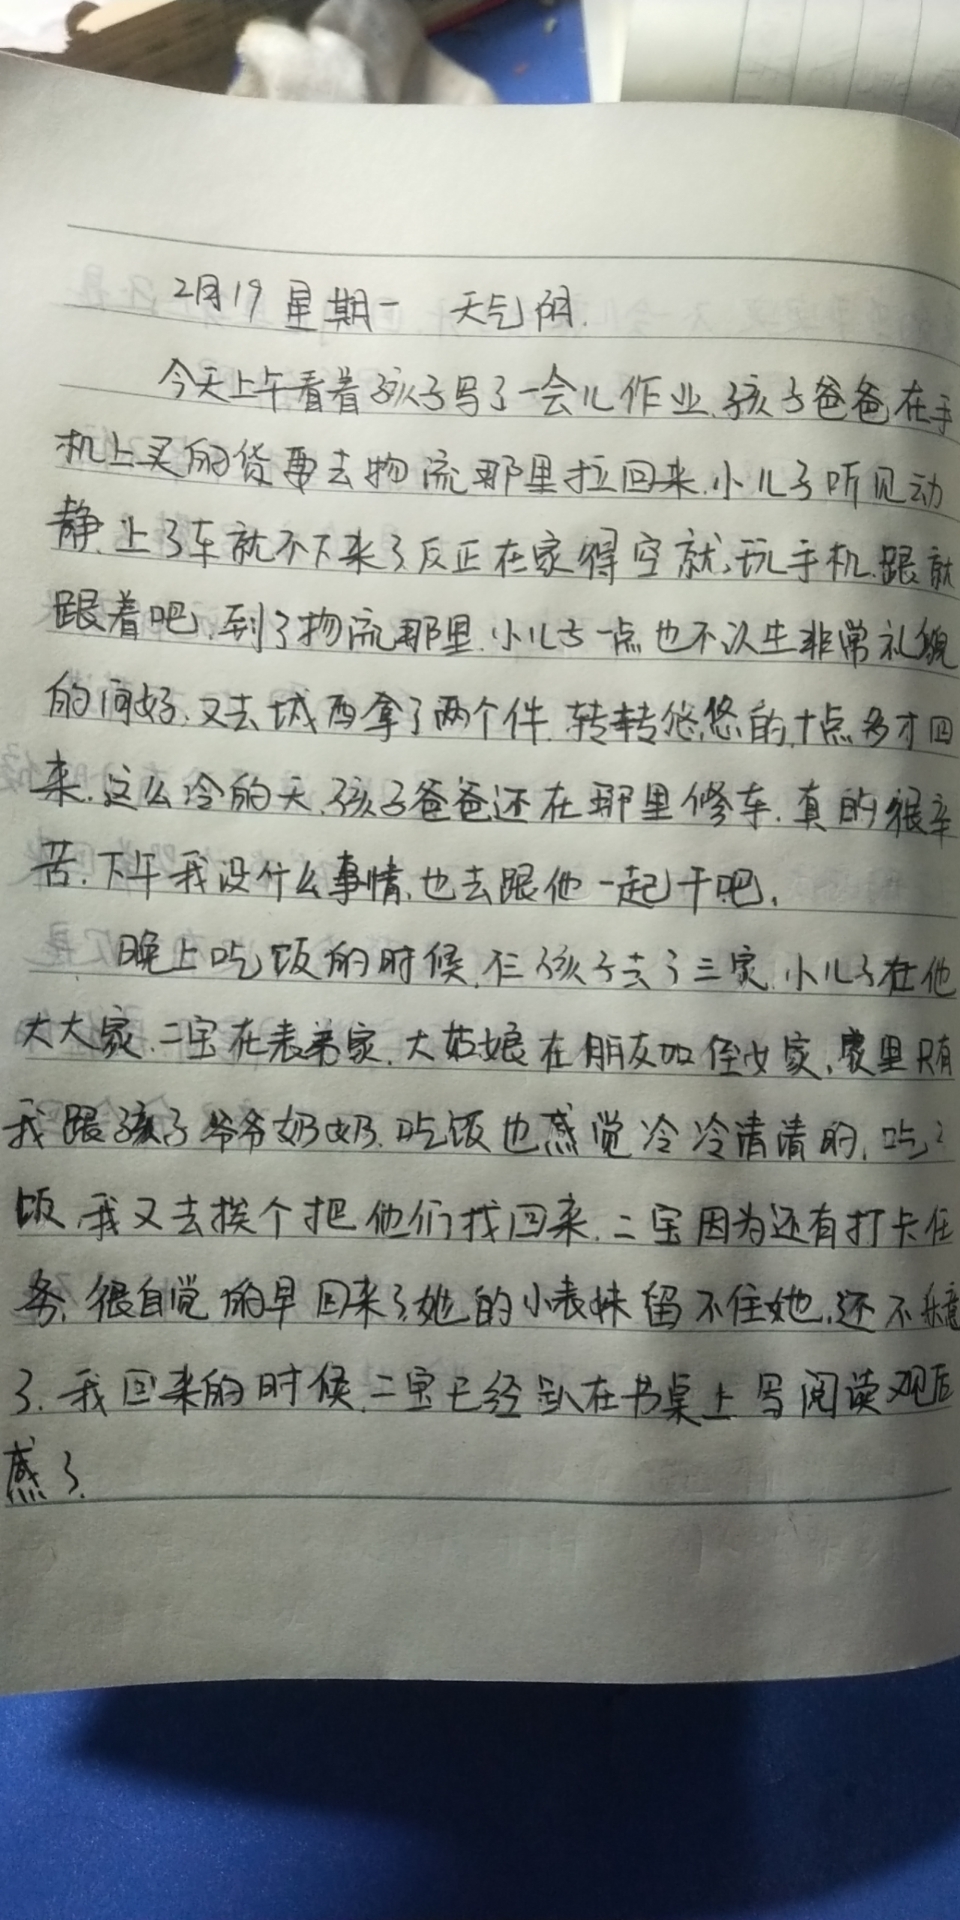 2月19 星期一 天气阴.
今天上午看着孩子写了一会儿作业.孩子爸爸在手
机上买的货要去物流那里拉回来.小儿子听见动
静.上了车就不下来了反正在家得空就玩手机.跟就
跟着吧.到了物流那里.小儿子一点也不认生非常礼貌
的问好.又去城西拿了两个件.转转悠悠的十点多才回
来.这么冷的天.孩子爸爸还在那里修车.真的很辛
苦.下午我没什么事情.也去跟他一起干吧.
晚上吃饭的时候.仨孩子去了三家.小儿子在他
大大家.二宝在表弟家.大姑娘在朋友加侄女家.家里只有
我跟孩子爷爷奶奶.吃饭也感觉冷冷清清的.吃了
饭.我又去挨个把他们找回来.二宝因为还有打卡任
务.很自觉的早回来了.她的小表妹留不住她.还不
了.我回来的时候.二宝已经趴在书桌上写阅读观后
感了.